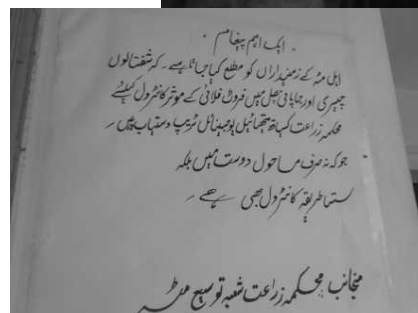 ایک اہم پیغام
اہل مٹہ کے زمینداران کو مطلع کیا جاتا ہے۔ کہ شفتالوں
چیری اور جاپانی پھل میں فروٹ فلائی کے موثر کنٹرول کیلئے
محکمہ زراعت کیساتھ میتھائیل یوجینائل ٹریپ دستیاب ہیں۔
جو کہ نہ صرف ماحول دوست ہیں بلکہ
سستا طریقہ کنٹرول بھی ہے۔
منجانب محکمہ زراعت شعبہ توسیع مٹہ